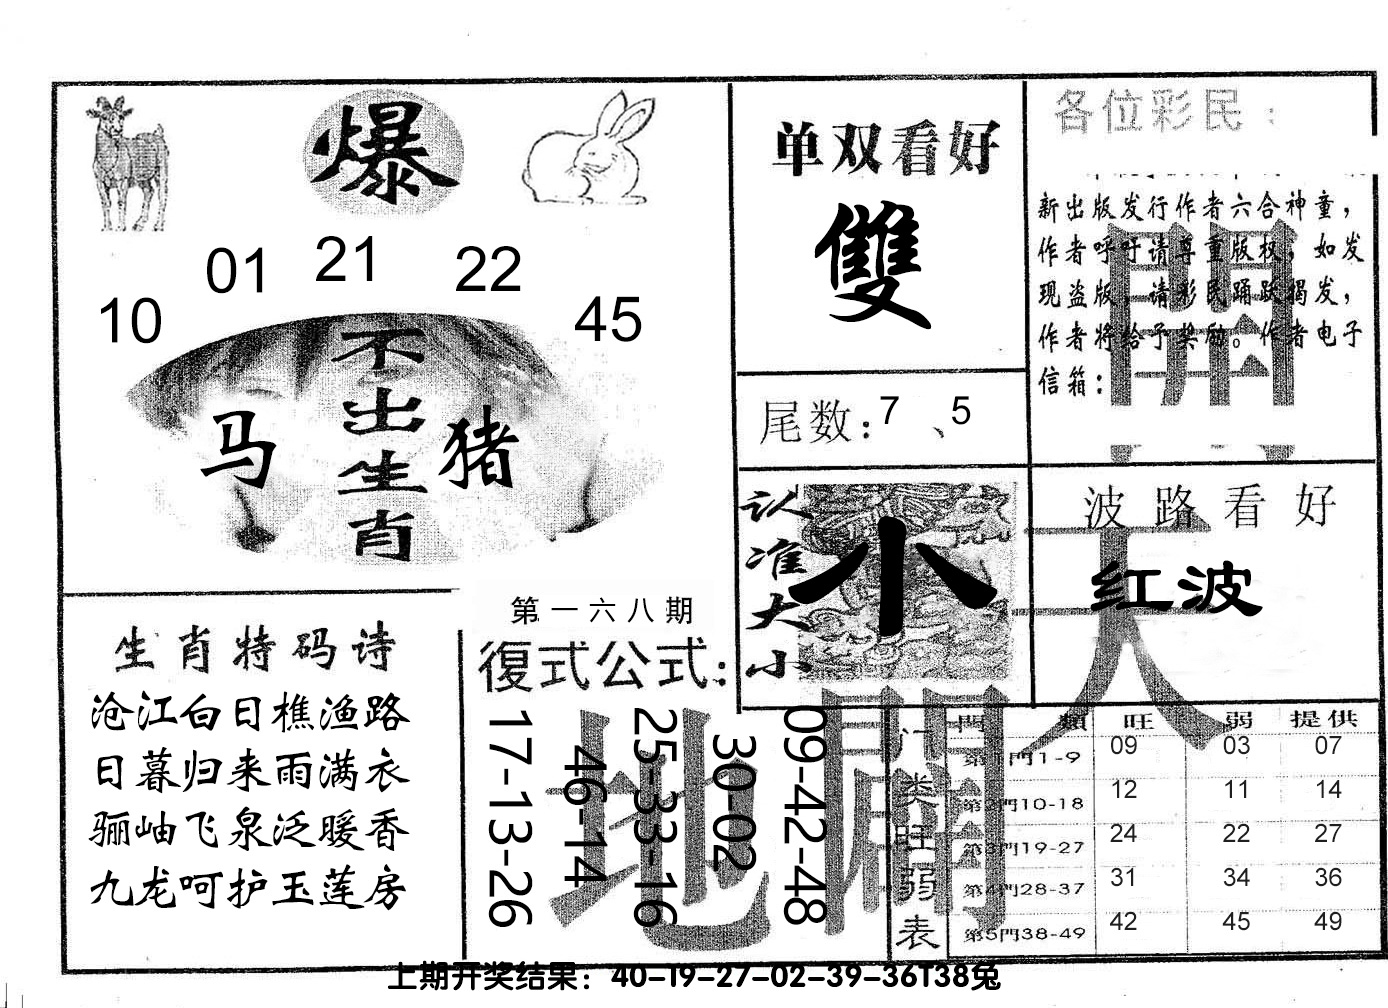 爆
10 01 21 22 45
不出生肖
马 猪
单双看好
雙
尾数:7、5
各位彩民:
新出版发行作者六合神童，
作者呼吁请尊重版权，如发
现盗版，请彩民踊跃揭发，
作者将给予奖励。作者电子
信箱:
認准大小
小
波路看好
红波
天
開
地
闢
生肖特码诗
沧江白日樵渔路
日暮归来雨满衣
骊岫飞泉泛暖香
九龙呵护玉莲房
第一六八期
復式公式:
17-13-26
46-14
25-33-16
30-02
09-42-48
门类旺弱表
門類 旺 弱 提供
第1門1-9 09 03 07
第2門10-18 12 11 14
第3門19-27 24 22 27
第4門28-37 31 34 36
第5門38-49 42 45 49
上期开奖结果：40-19-27-02-39-36T38兔